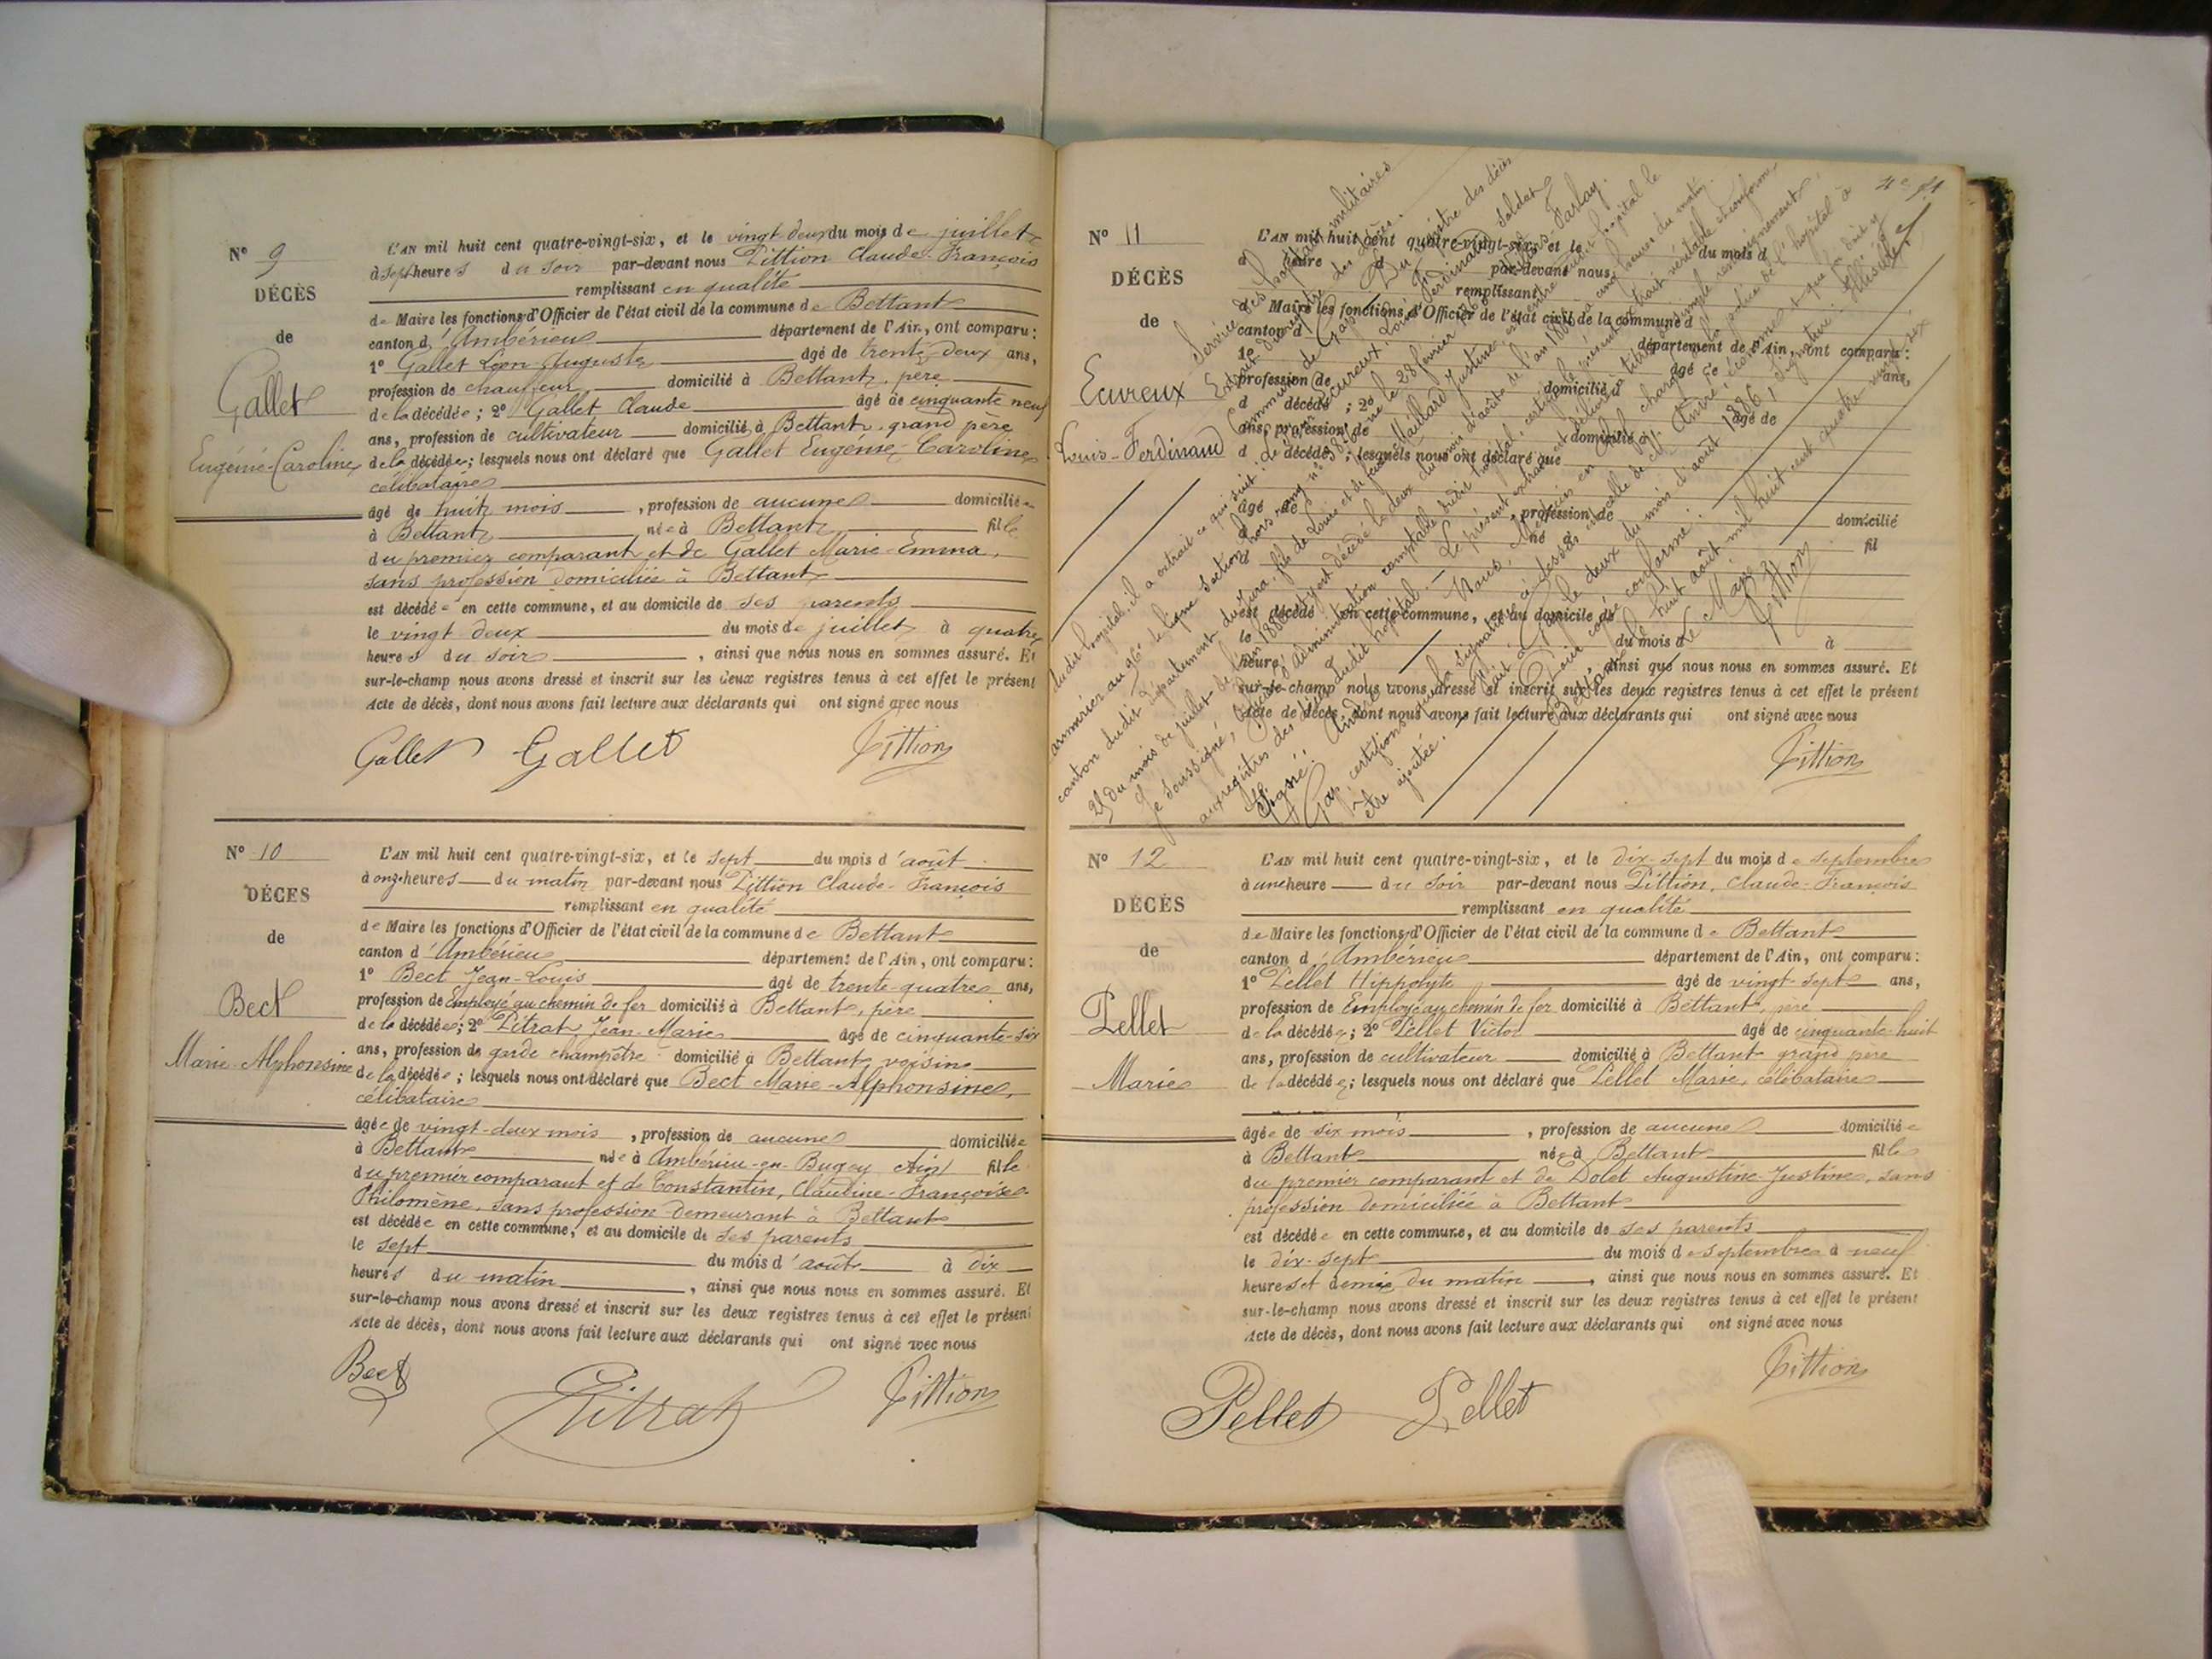 N° 9
DÉCÈS
de
Gallet
Eugénie-Caroline
L'AN mil huit cent quatre-vingt-six, et le vingt deux du mois de juillet
à sept heures du soir par-devant nous Pittion Claude-François
remplissant en qualité
de Maire les fonctions d'Officier de l'état civil de la commune de Bettant
canton d'Ambérieu département de l'Ain, ont comparu :
1° Gallet Léon Auguste âgé de trente deux ans,
profession de chauffeur domicilié à Bettant, père
de la décédée ; 2° Gallet Claude âgé de cinquante neuf
ans, profession de cultivateur domicilié à Bettant, grand père
de la décédée ; lesquels nous ont déclaré que Gallet Eugénie-Caroline
célibataire
âgé de huit mois, profession de aucune domiciliée
à Bettant née à Bettant fille
du premier comparant et de Gallet Marie-Emma,
sans profession domiciliée à Bettant
est décédée en cette commune, et au domicile de ses parents
le vingt deux du mois de juillet à quatre
heures du soir, ainsi que nous nous en sommes assuré. Et
sur-le-champ nous avons dressé et inscrit sur les deux registres tenus à cet effet le présent
Acte de décès, dont nous avons fait lecture aux déclarants qui ont signé avec nous
Gallet Gallet Pittion
N° 10
DÉCES
de
Bect
Marie-Alphonsine
L'AN mil huit cent quatre-vingt-six, et le sept du mois d'août
à onze heures du matin par-devant nous Pittion Claude-François
remplissant en qualité
de Maire les fonctions d'Officier de l'état civil de la commune de Bettant
canton d'Ambérieu département de l'Ain, ont comparu :
1° Bect Jean-Louis âgé de trente-quatre ans,
profession de Employé au chemin de fer domicilié à Bettant, père
de la décédée ; 2° Pitrat Jean-Marie âgé de cinquante-six
ans, profession de garde champêtre domicilié à Bettant, voisin
de la décédée ; lesquels nous ont déclaré que Bect Marie-Alphonsine,
célibataire
âgée de vingt-deux mois, profession de aucune domiciliée
à Bettant née à Ambérieu-en-Bugey Ain fille
du premier comparant et de Constantin, Claudine-Françoise-
Philomène, sans profession demeurant à Bettant
est décédée en cette commune, et au domicile de ses parents
le sept du mois d'août à dix
heures du matin, ainsi que nous nous en sommes assuré. Et
sur-le-champ nous avons dressé et inscrit sur les deux registres tenus à cet effet le présent
Acte de décès, dont nous avons fait lecture aux déclarants qui ont signé avec nous
Bect Pitrat Pittion
N° 11
DÉCÈS
de
Ecureux
Louis-Ferdinand
L'AN mil huit cent quatre-vingt-six, et le du mois d
à heure d par-devant nous
remplissant
d Maire les fonctions d'Officier de l'état civil de la commune d
canton d département de l'Ain, ont comparu :
1° âgé de ans,
profession de domicilié à
d décédé ; 2° âgé de
ans, profession de domicilié à
d décédé ; lesquels nous ont déclaré que
âgé de , profession de domicilié
à né à fil
d
est décédé en cette commune, et au domicile de
le du mois d à
heure , ainsi que nous nous en sommes assuré. Et
sur-le-champ nous avons dressé et inscrit sur les deux registres tenus à cet effet le présent
Acte de décès, dont nous avons fait lecture aux déclarants qui ont signé avec nous
Service des hôpitaux militaires
Extrait du registre des décès.
Commune de Gap. Du registre des décès
dudit hôpital, il a extrait ce qui suit :
Ecureux, Louis Ferdinand, soldat
armurier au 96e de ligne Section hors rang
canton dudit département du Jura, fils de Louis et de
25 du mois de juillet de l'an 1886
Je soussigné, Officier d'administration comptable dudit hôpital, certifie le présent extrait véritable et conforme
aux registres des décès dudit hôpital.
Signé : André
être ajoutée.
Pour copie conforme :
Bettant, le huit août mil huit cent quatre vingt six
Le Maire
Pittion
Pittion
N° 12
DÉCÈS
de
Pellet
Marie
L'AN mil huit cent quatre-vingt-six, et le dix-sept du mois de septembre
à une heure du soir par-devant nous Pittion, Claude-François
remplissant en qualité
de Maire les fonctions d'Officier de l'état civil de la commune de Bettant
canton d'Ambérieu département de l'Ain, ont comparu :
1° Pellet Hippolyte âgé de vingt-sept ans,
profession de Employé au chemin de fer domicilié à Bettant, père
de la décédée ; 2° Pellet Victor âgé de cinquante-huit
ans, profession de cultivateur domicilié à Bettant grand père
de la décédée ; lesquels nous ont déclaré que Pellet Marie, célibataire
âgée de six mois, profession de aucune domiciliée
à Bettant née à Bettant fille
du premier comparant et de Dolet Augustine-Justine, sans
profession domiciliée à Bettant
est décédée en cette commune, et au domicile de ses parents
le dix-sept du mois de septembre à neuf
heures et demie du matin, ainsi que nous nous en sommes assuré. Et
sur-le-champ nous avons dressé et inscrit sur les deux registres tenus à cet effet le présent
Acte de décès, dont nous avons fait lecture aux déclarants qui ont signé avec nous
Pellet Pellet Pittion